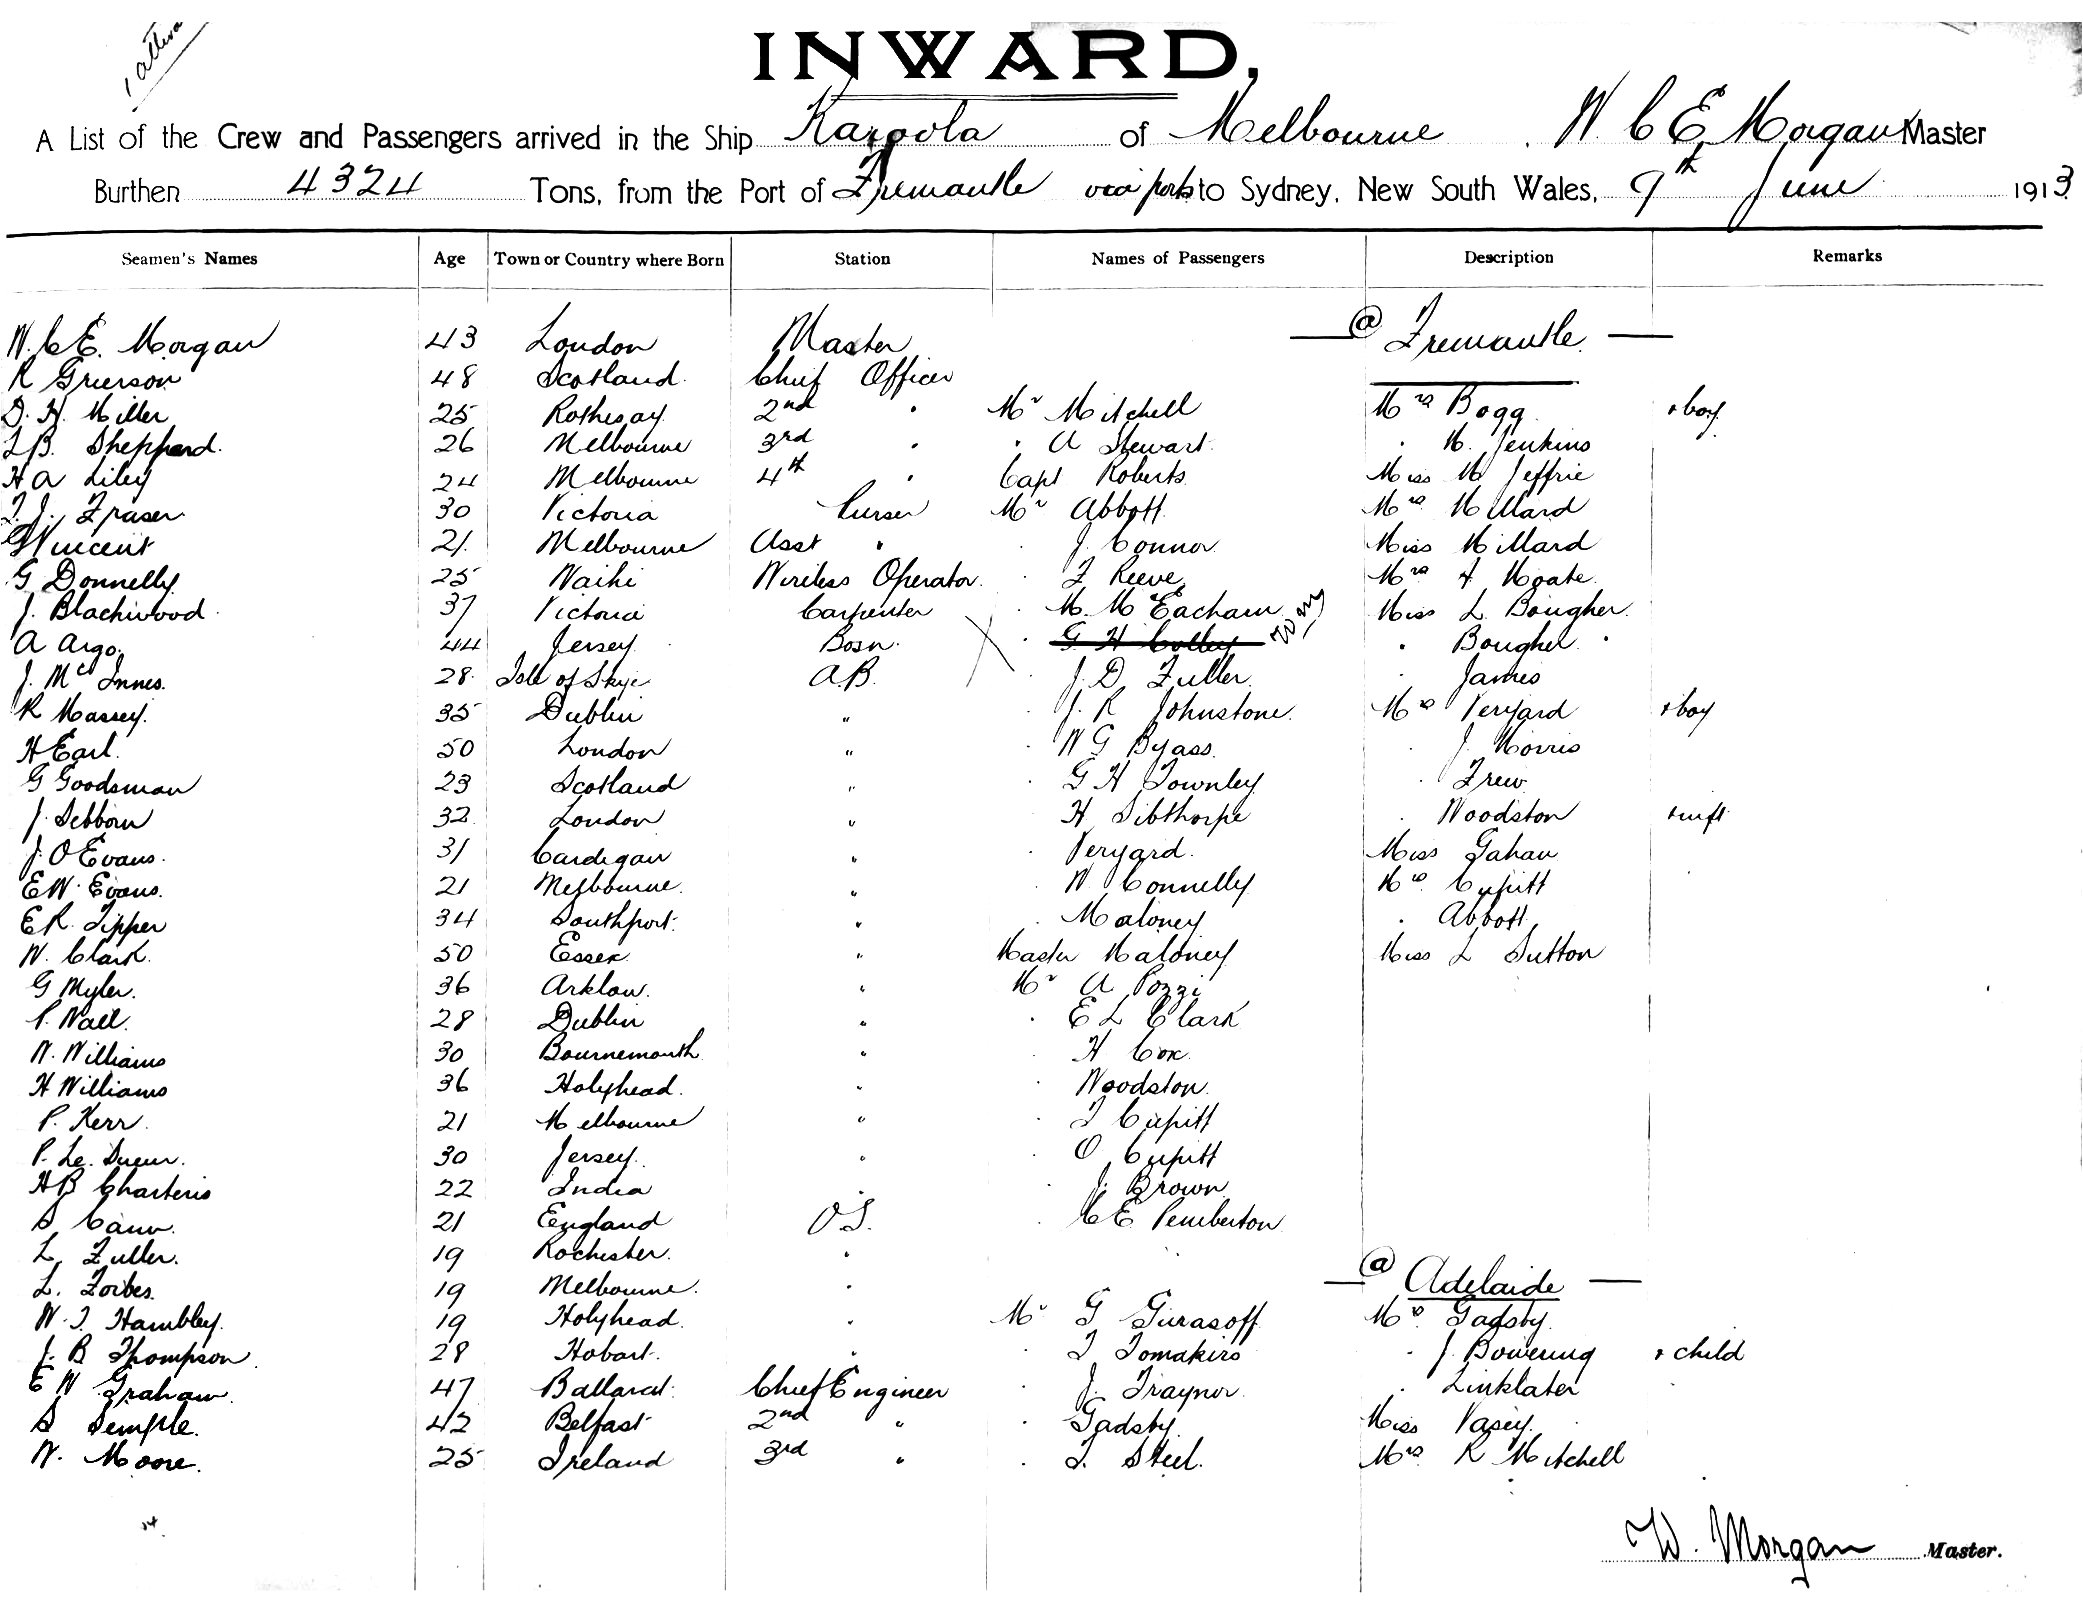 INWARD,
A List of the Crew and Passengers arrived in the Ship Karoola of Melbourne. W. C E Morgan Master
Burthen 4324 Tons, from the Port of Fremantle via ports to Sydney, New South Wales, 9th June 1913
Seamen's Names Age Town or Country where Born Station Names of Passengers Description Remarks
W. C E. Morgan 43 London Master — @ Fremantle. —
R Grierson 48 Scotland. Chief Officer
D. H. Miller 25 Rothesay 2nd " Mr Mitchell Mrs Bogg. & boy.
L B. Sheppard. 26 Melbourne 3rd " " A Stewart. " W. Jenkins
H A Liley 24 Melbourne 4th " Capt Roberts Miss M Jeffrie
T. J. Fraser 30 Victoria Purser Mr Abbott. Mrs Millard
G Vincent 21. Melbourne Asst " " J. Connor. Miss Millard
G Donnelly. 25 Waihi Wireless Operator. " F Reeve Mrs A Moate.
J. Blackwood 37 Victoria Carpenter " M. McEacharn Miss L. Bougher.
A Argo. 44 Jersey. Bosn. " G H Colley " Bougher "
J. McInnes. 28. Isle of Skye A.B. " J. D. Fuller. " James
R Massey. 35 Dublin " " J. R Johnstone. Mrs Veryard & boy
H Earl. 50 London " " W G Byass. " J. Morris
G Goodsman 23 Scotland " " G H Townley " Frew
J. Sebborn 32 London " " H Sibthorpe " Woodston & inft
J. O Evans. 31 Cardigan " " Veryard. Miss Gahan
E W. Evans. 21 Melbourne. " " W Connelly Mrs Cupitt
E R. Tipper 34 Southport. " " Maloney " Abbott
W. Clark. 50 Essex. " Master Maloney Miss L Sutton
G Myler. 36 Arklow. " Mr A Pozzi
P. Nall. 28 Dublin " " E L Clark
W. Williams 30 Bournemouth " " H Cox.
H Williams 36 Holyhead. " " Woodston.
P. Kerr. 21 Melbourne " " T Cupitt
P. Le. Sueur. 30 Jersey. " " O Cupitt
H B Charteris 22 India " " J. Brown
S Cann. 21 England O S. " C E Pemberton
L. Fuller. 19 Rochester. "
L. Forbes. 19 Melbourne. " — @ Adelaide —
W. T. Hambley. 19 Holyhead. " Mr G Gurasoff Mrs. Gadsby.
J. B Thompson. 28 Hobart. " " T Tomakiro " J. Bowering & child
E W Graham. 47 Ballarat. Chief Engineer " J. Traynor. " Linklater
S Semple. 42 Belfast 2nd " " Gadsby. Miss Vasey.
W. Moore. 25 Ireland 3rd " " T. Steel. Mrs R Mitchell
W. Morgan Master.